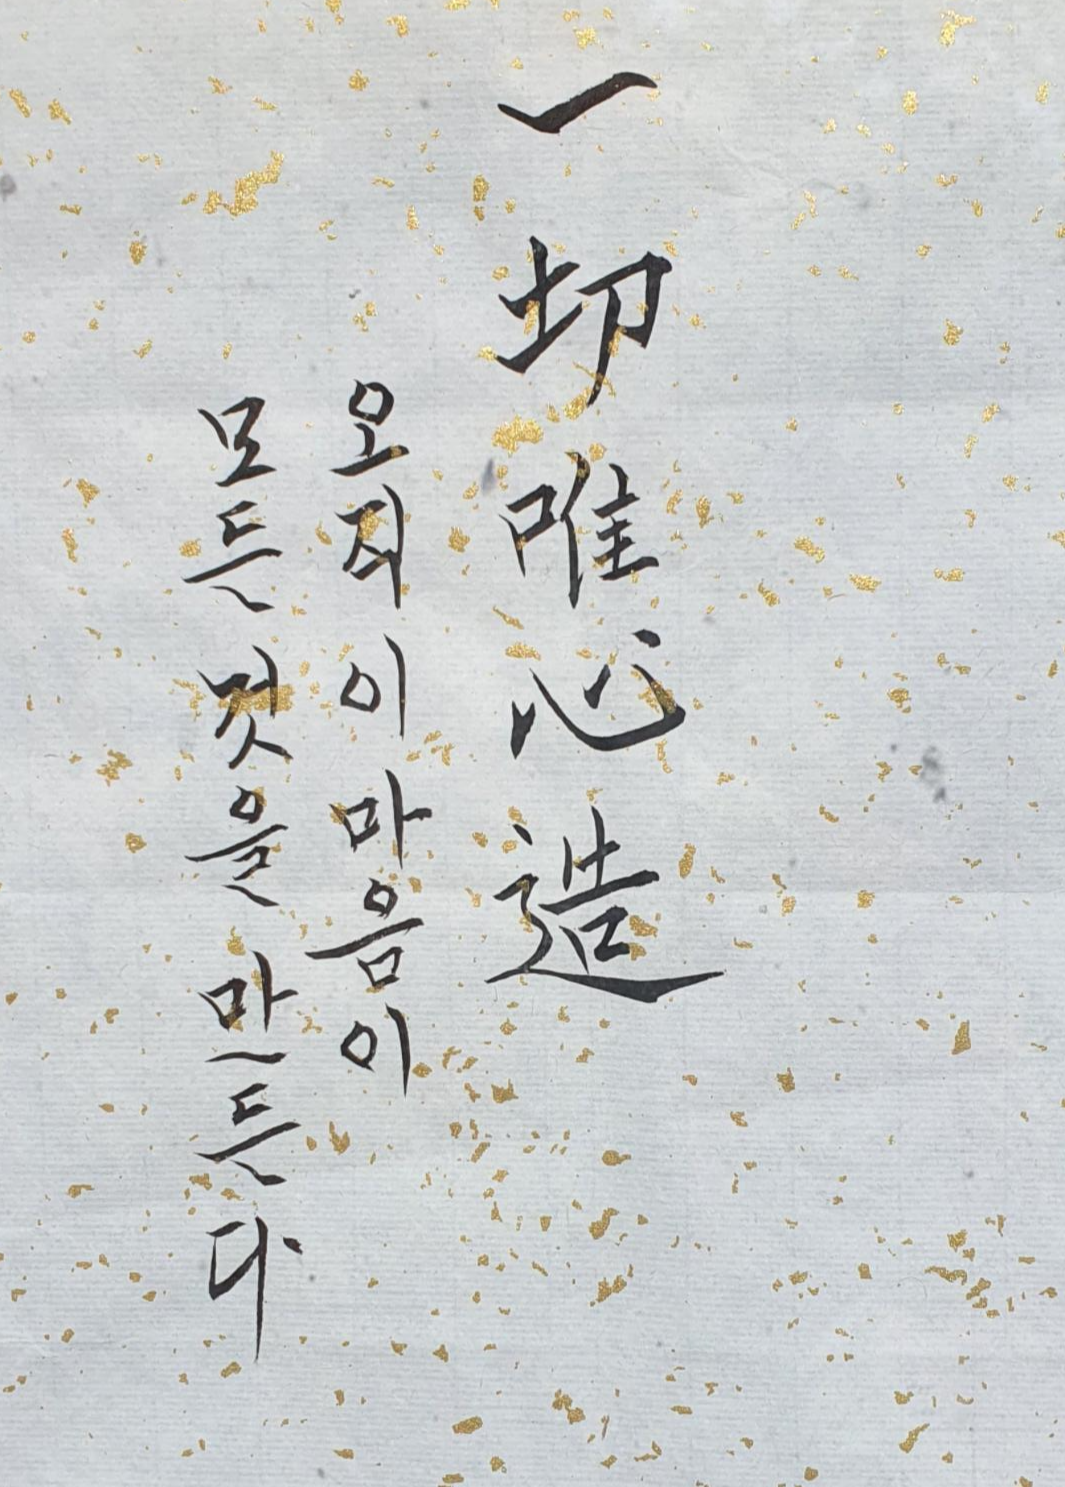 一切唯心造
오직 이 마음이
모든 것을 만든다